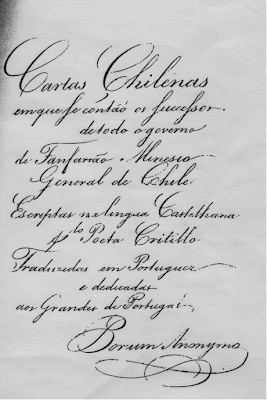 Cartas Chilenas
em que se contaõ os successos
de todo o governo
de Fanfarrão Minesio
General de Chile
Escreptas na lingua Castelhana
plo Poeta Critillo
Traduzedas em Portuguez
e dedicadas
aos Grandes de Portugal
Por um Anonymo